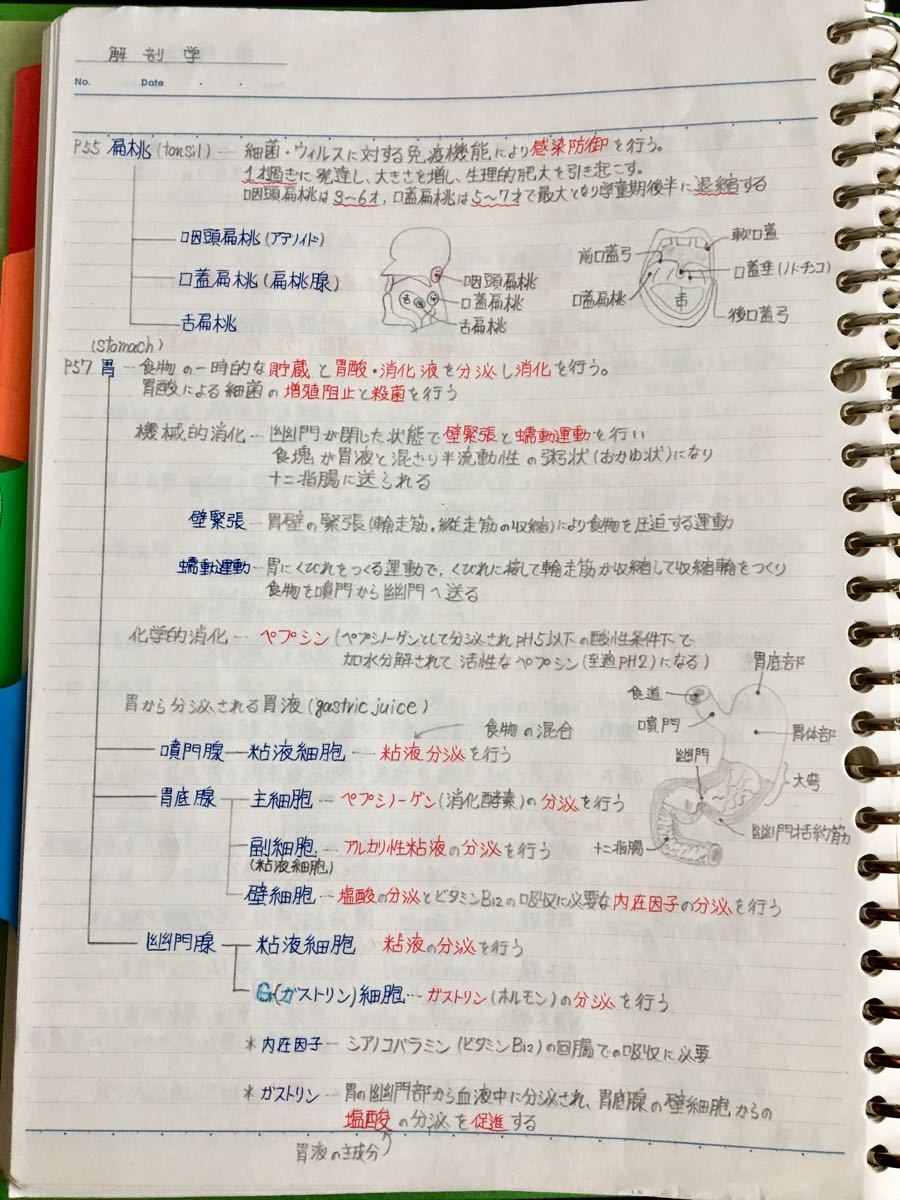 解剖学
No.
Date
P55 扁桃(tonsil) ― 細菌・ウィルスに対する免疫機能により感染防御を行う。
1才過ぎに発達し、大きさを増し、生理的肥大を引き起こす。
咽頭扁桃は3〜6才, 口蓋扁桃は5〜7才で最大となり学童期後半に退縮する
咽頭扁桃(アデノイド)
口蓋扁桃(扁桃腺)
舌扁桃
咽頭扁桃
口蓋扁桃
舌扁桃
舌
前口蓋弓
軟口蓋
口蓋垂(ノドチンコ)
口蓋扁桃
舌
後口蓋弓
(stomach)
P57 胃 … 食物の一時的な貯蔵と胃酸・消化液を分泌し消化を行う。
胃酸による細菌の増殖阻止と殺菌を行う
機械的消化 … 幽門が閉じた状態で壁緊張と蠕動運動を行い
食塊が胃液と混さり半流動性の粥状(おかゆ状)になり
十二指腸に送られる
壁緊張 ― 胃壁の緊張(輪走筋・縦走筋の収縮)により食物を圧迫する運動
蠕動運動 … 胃にくびれをつくる運動で、くびれに接して輪走筋が収縮して収縮輪をつくり
食物を噴門から幽門へ送る
化学的消化 … ペプシン(ペプシノーゲンとして分泌されPH5以下の酸性条件下で
加水分解されて活性なペプシン(至適PH2)になる)
胃底部
食道
噴門
胃体部
幽門
大弯
幽門括約筋
十二指腸
胃から分泌される胃液(gastric juice)
食物の混合
噴門腺 ― 粘液細胞 … 粘液分泌を行う
胃底腺
主細胞 … ペプシノーゲン(消化酵素)の分泌を行う
副細胞 … アルカリ性粘液の分泌を行う
(粘液細胞)
壁細胞 … 塩酸の分泌とビタミンB12の吸収に必要な内在因子の分泌を行う
幽門腺
粘液細胞 粘液の分泌を行う
G(ガストリン)細胞 … ガストリン(ホルモン)の分泌を行う
*内在因子 ― シアノコバラミン(ビタミンB12)の回腸での吸収に必要
*ガストリン ― 胃の幽門部から血液中に分泌され、胃底腺の壁細胞からの
塩酸の分泌を促進する
胃液の主成分